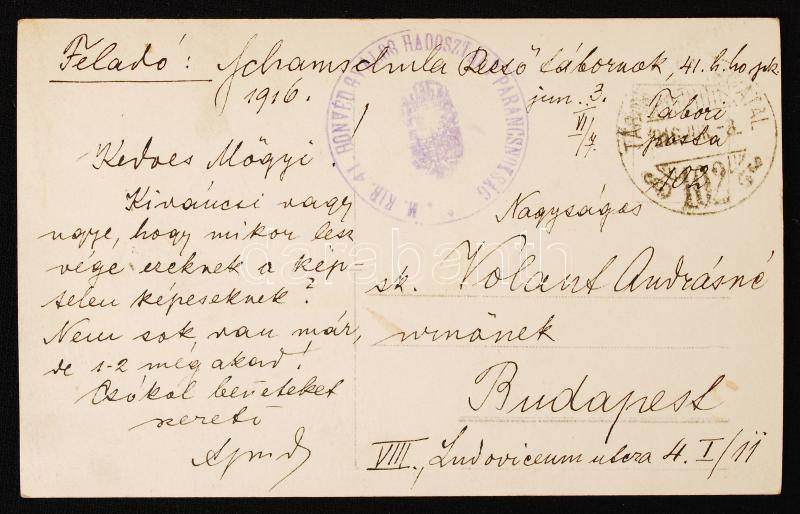 Feladó: Schamschula Rezső tábornok, 41. h. ho. pk.
1916. jun. 3.
VI/7.
Tábori
posta
102
M. KIR. 41. HONVÉD GYALOG HADOSZTÁLYPARANCSNOKSÁG
TÁBORI POSTAHIVATAL
102
Kedves Mógyi!
Kiváncsi vagy
ugye, hogy mikor lesz
vége ezeknek a kép-
telen képeseknek?
Nem sok van már,
de 1-2 még akad!
Csókol benneteket
szerető
Nagyságos
Volant Andrásné
urnőnek
Budapest
VIII., Ludoviceum utcza 4. I/11
darabanth